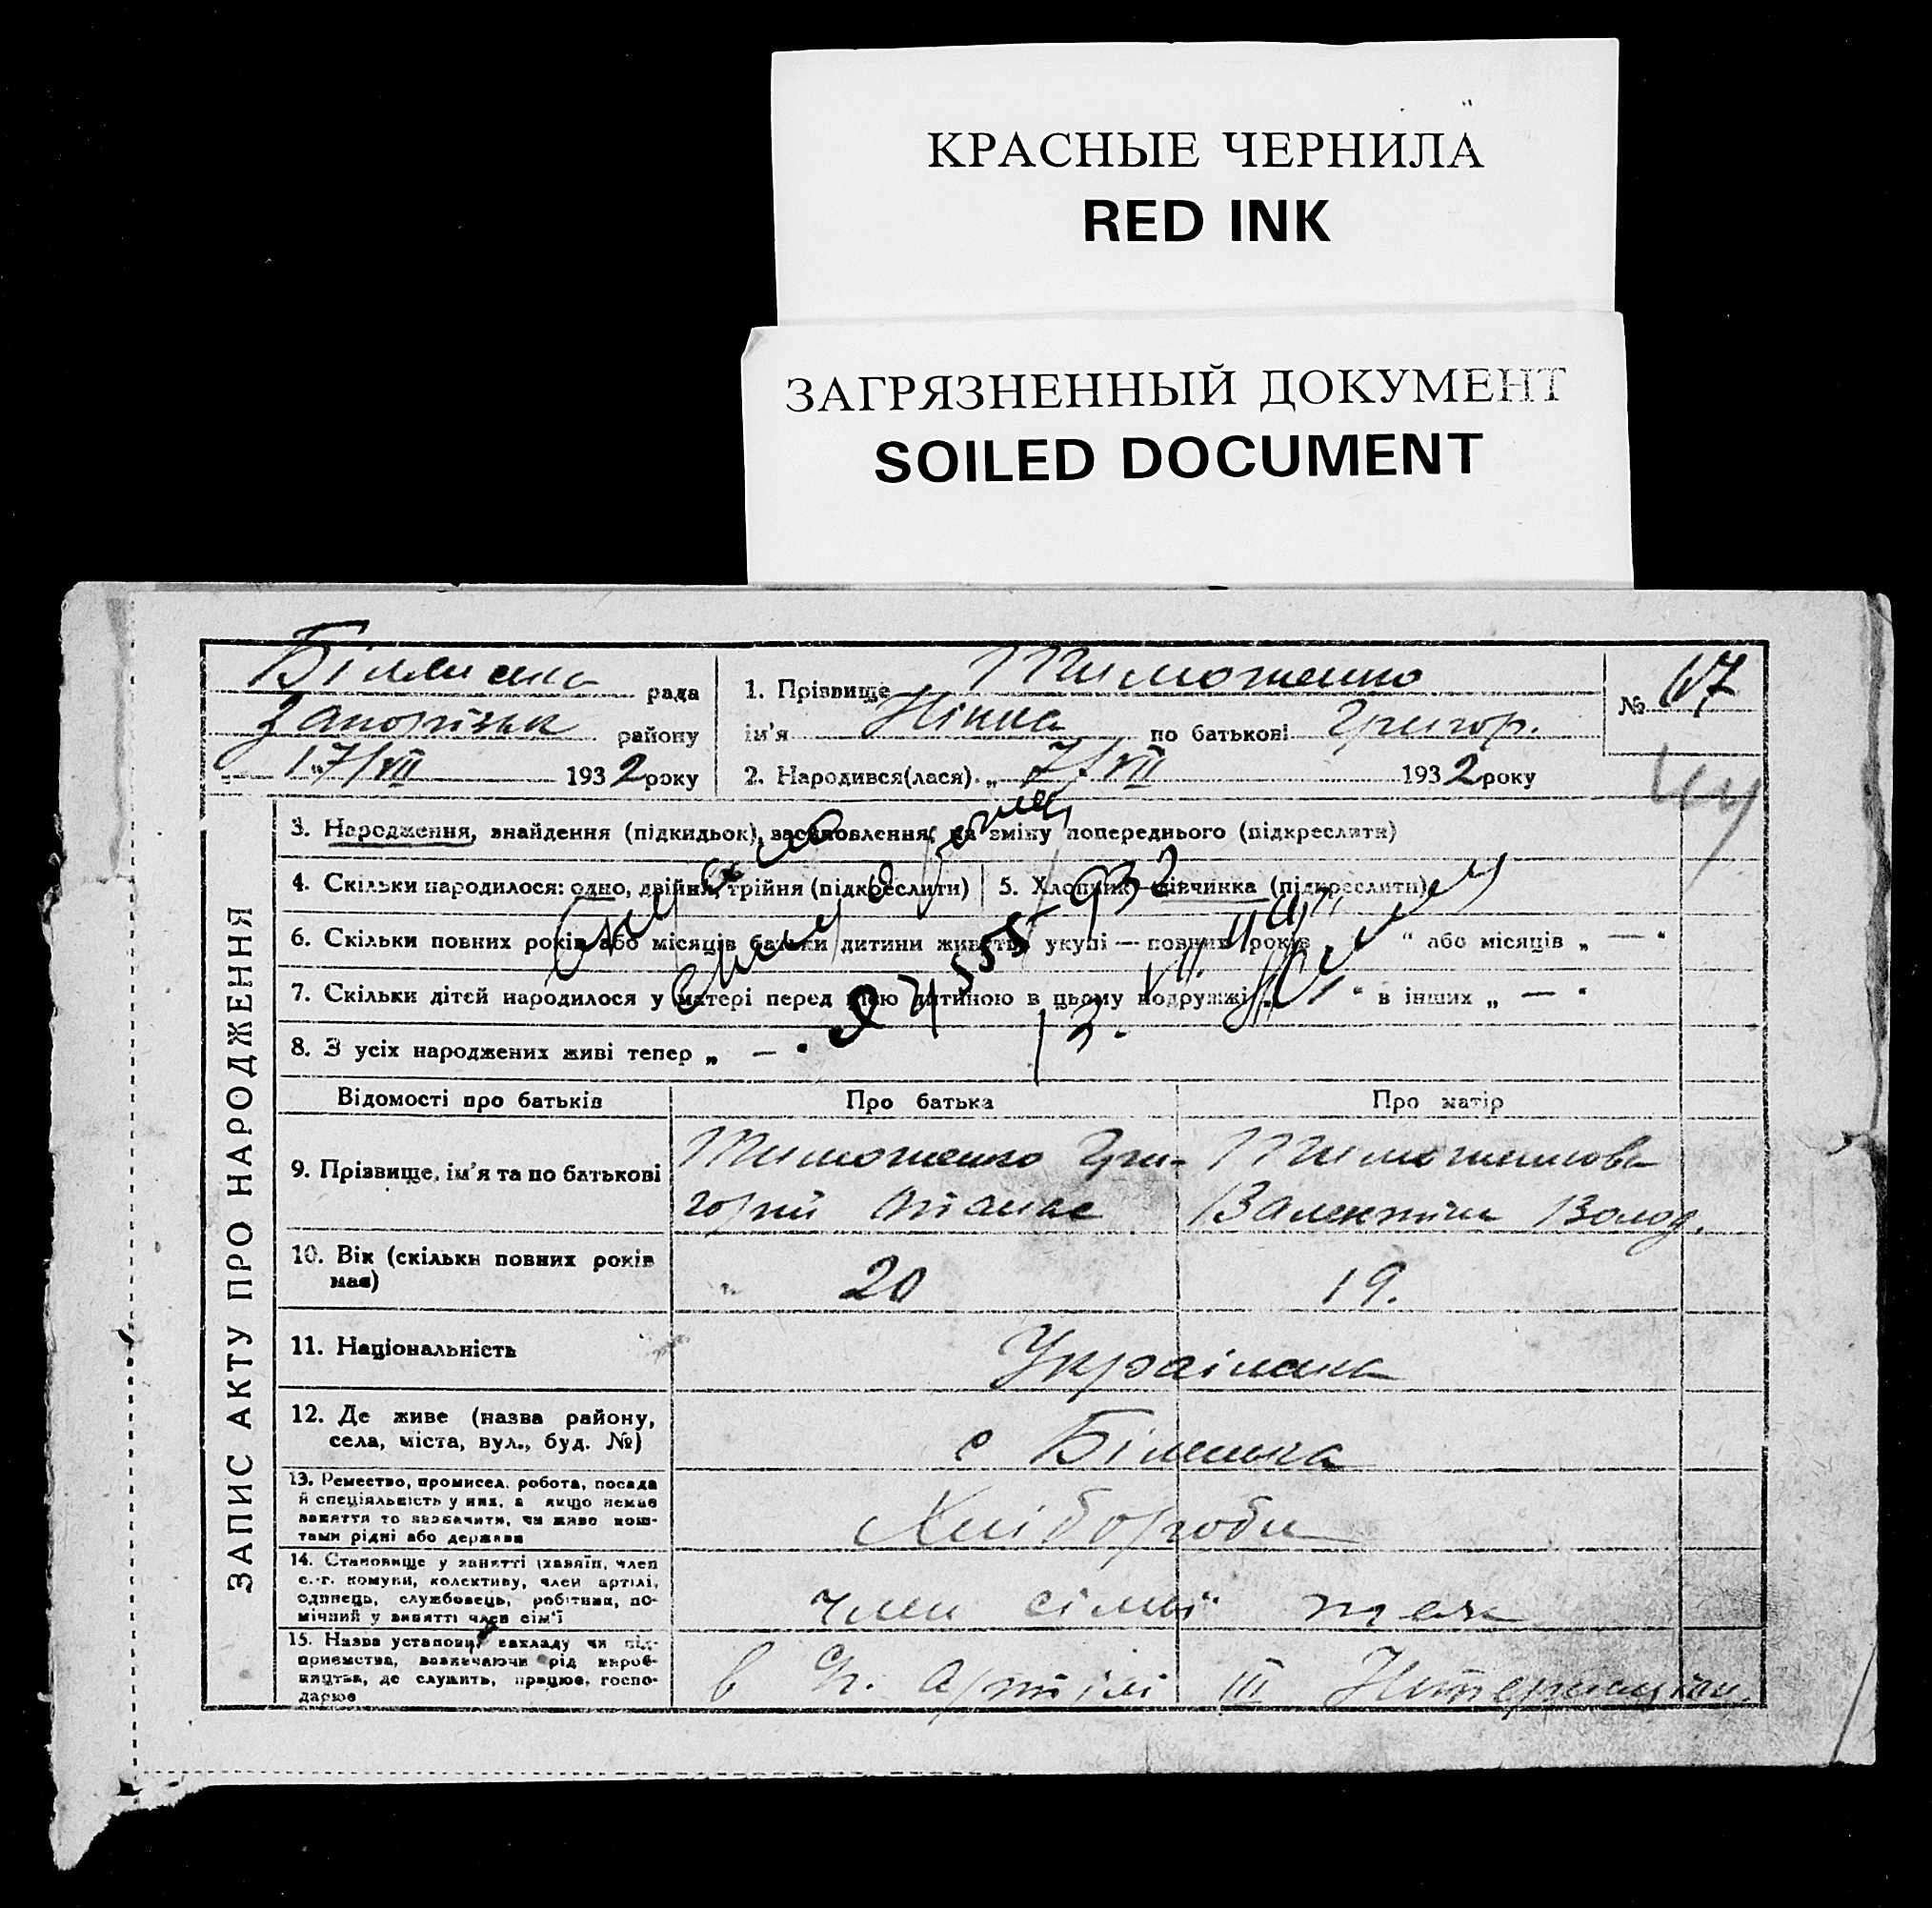 КРАСНЫЕ ЧЕРНИЛА
RED INK
ЗАГРЯЗНЕННЫЙ ДОКУМЕНТ
SOILED DOCUMENT
рада
Запорізьк району
17/VII 1932 року
1. Прізвище Тимошенко
ім'я Нінна по батькові Григор.
2. Народився(лася) „ 7/VII 1932 року
№ 67
ЗАПИС АКТУ ПРО НАРОДЖЕННЯ
3. Народження, знайдення (підкидьок), встановлення, на зміну попереднього (підкреслити)
4. Скільки народилося: одно, двійня, трійня (підкреслити)
5. Хлопчик — дівчинка (підкреслити)
6. Скільки повних років або місяців батьки дитини живуть укупі — повних років “ або місяців „ — “
7. Скільки дітей народилося у матері перед цією дитиною в цьому подружжі „ “ в інших „ — “
8. З усіх народжених живі тепер „ — “
Відомості про батьків
Про батька
Про матір
9. Прізвище, ім'я та по батькові
Тимошенко Гри-
горій Опанас
Тимошенкова
Валентіна Волод.
10. Вік (скільки повних років
має)
20
19.
11. Національність
Українська
12. Де живе (назва району,
села, міста, вул., буд. №)
с Біленька
13. Ремество, промисел, робота, посада
й спеціяльність у них, а якщо немає
заняття то зазначити, чи живе кош-
тами рідні або держави
Хлібороби
14. Становище у занятті (хазяїн, член
с.-г. комуни, колективу, член артілі,
одинець, службовець, робітник, по-
мічний у занятті член сім'ї
член сімьї теж
15. Назва установи, закладу чи під-
приємства, зазначаючи рід вироб-
ництва, де служить, працює, госпо-
дарює
в С/г. Артілі III Интернаціон.